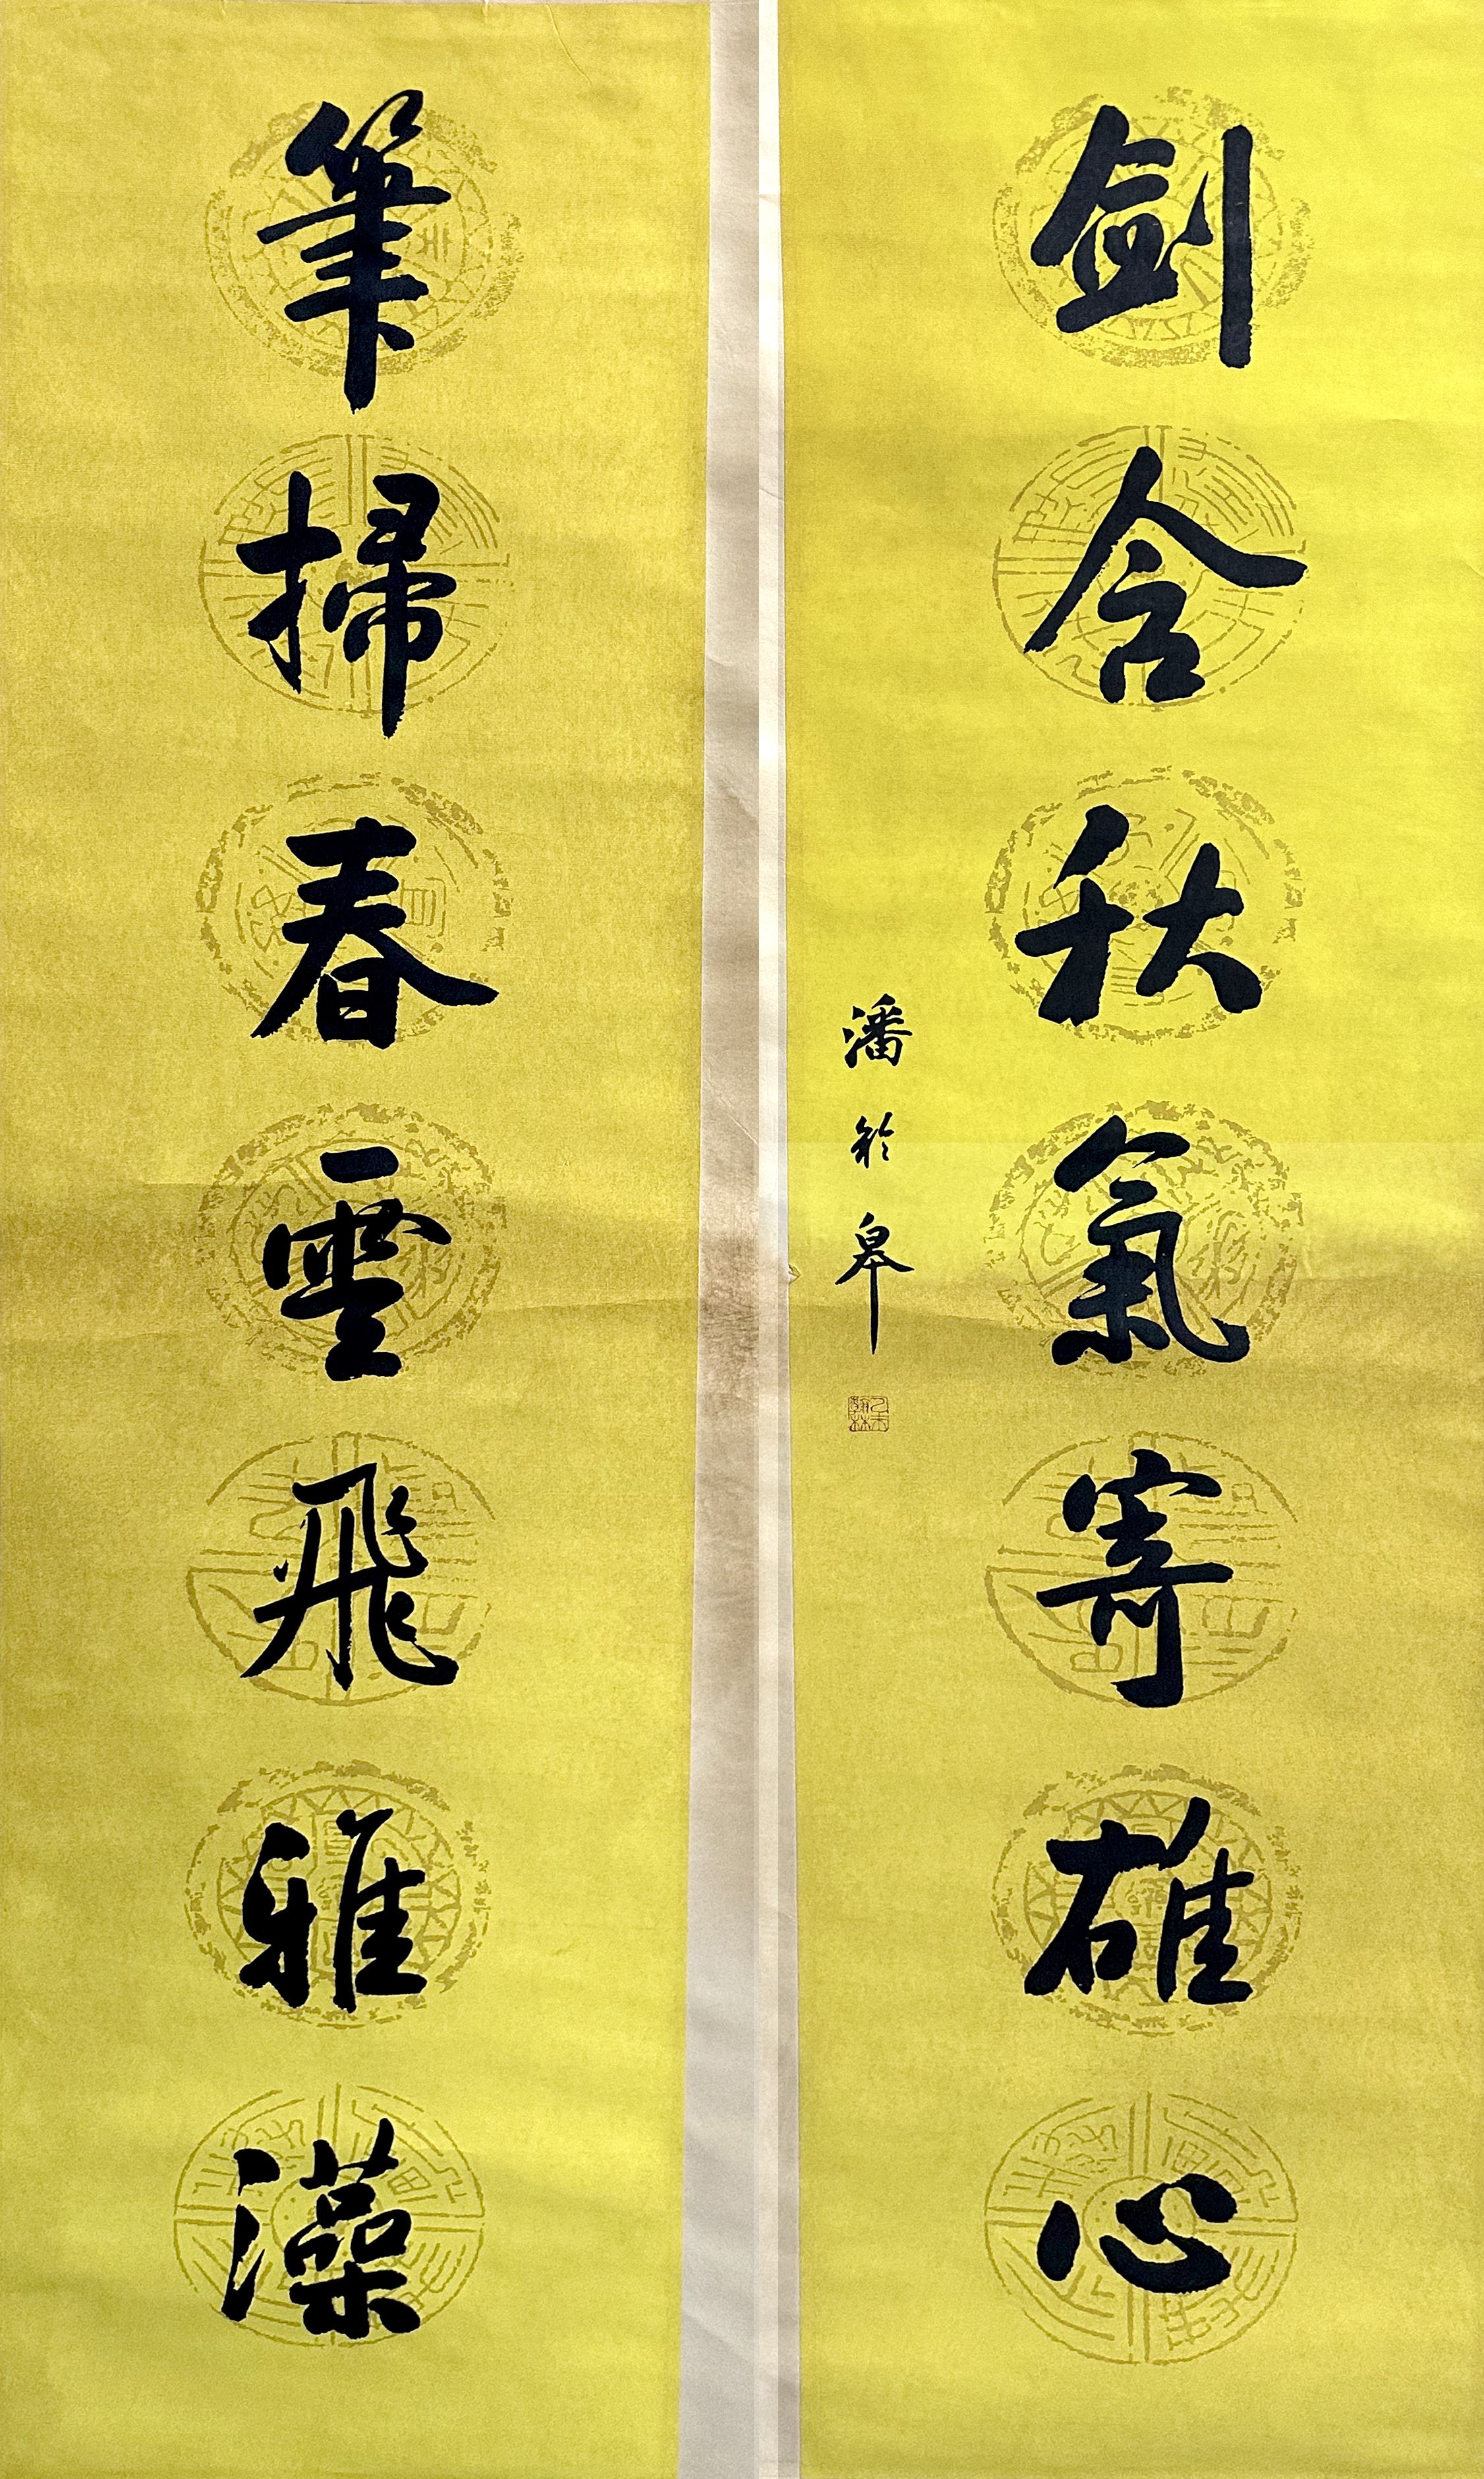 劍含秋氣寄雄心
筆掃春雲飛雅藻
潘齡皋